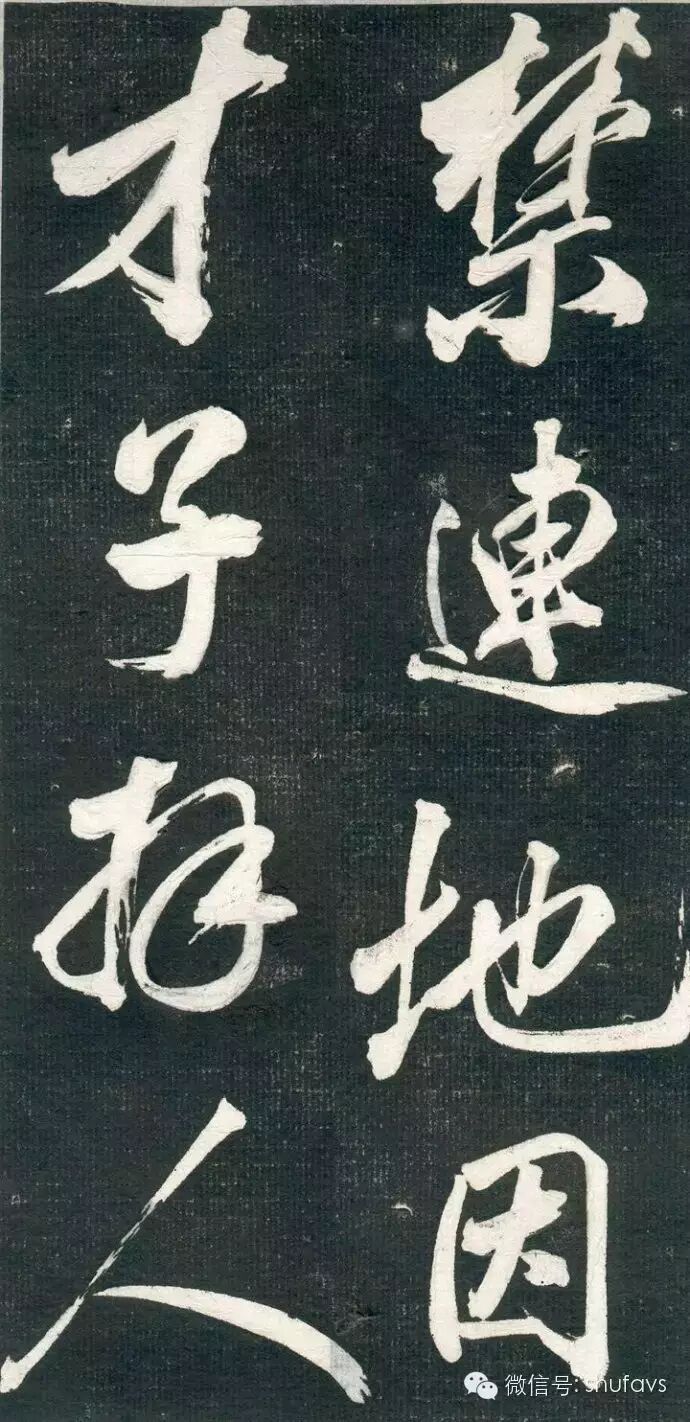 禁連地因
才子拜人
微信号: shufavs